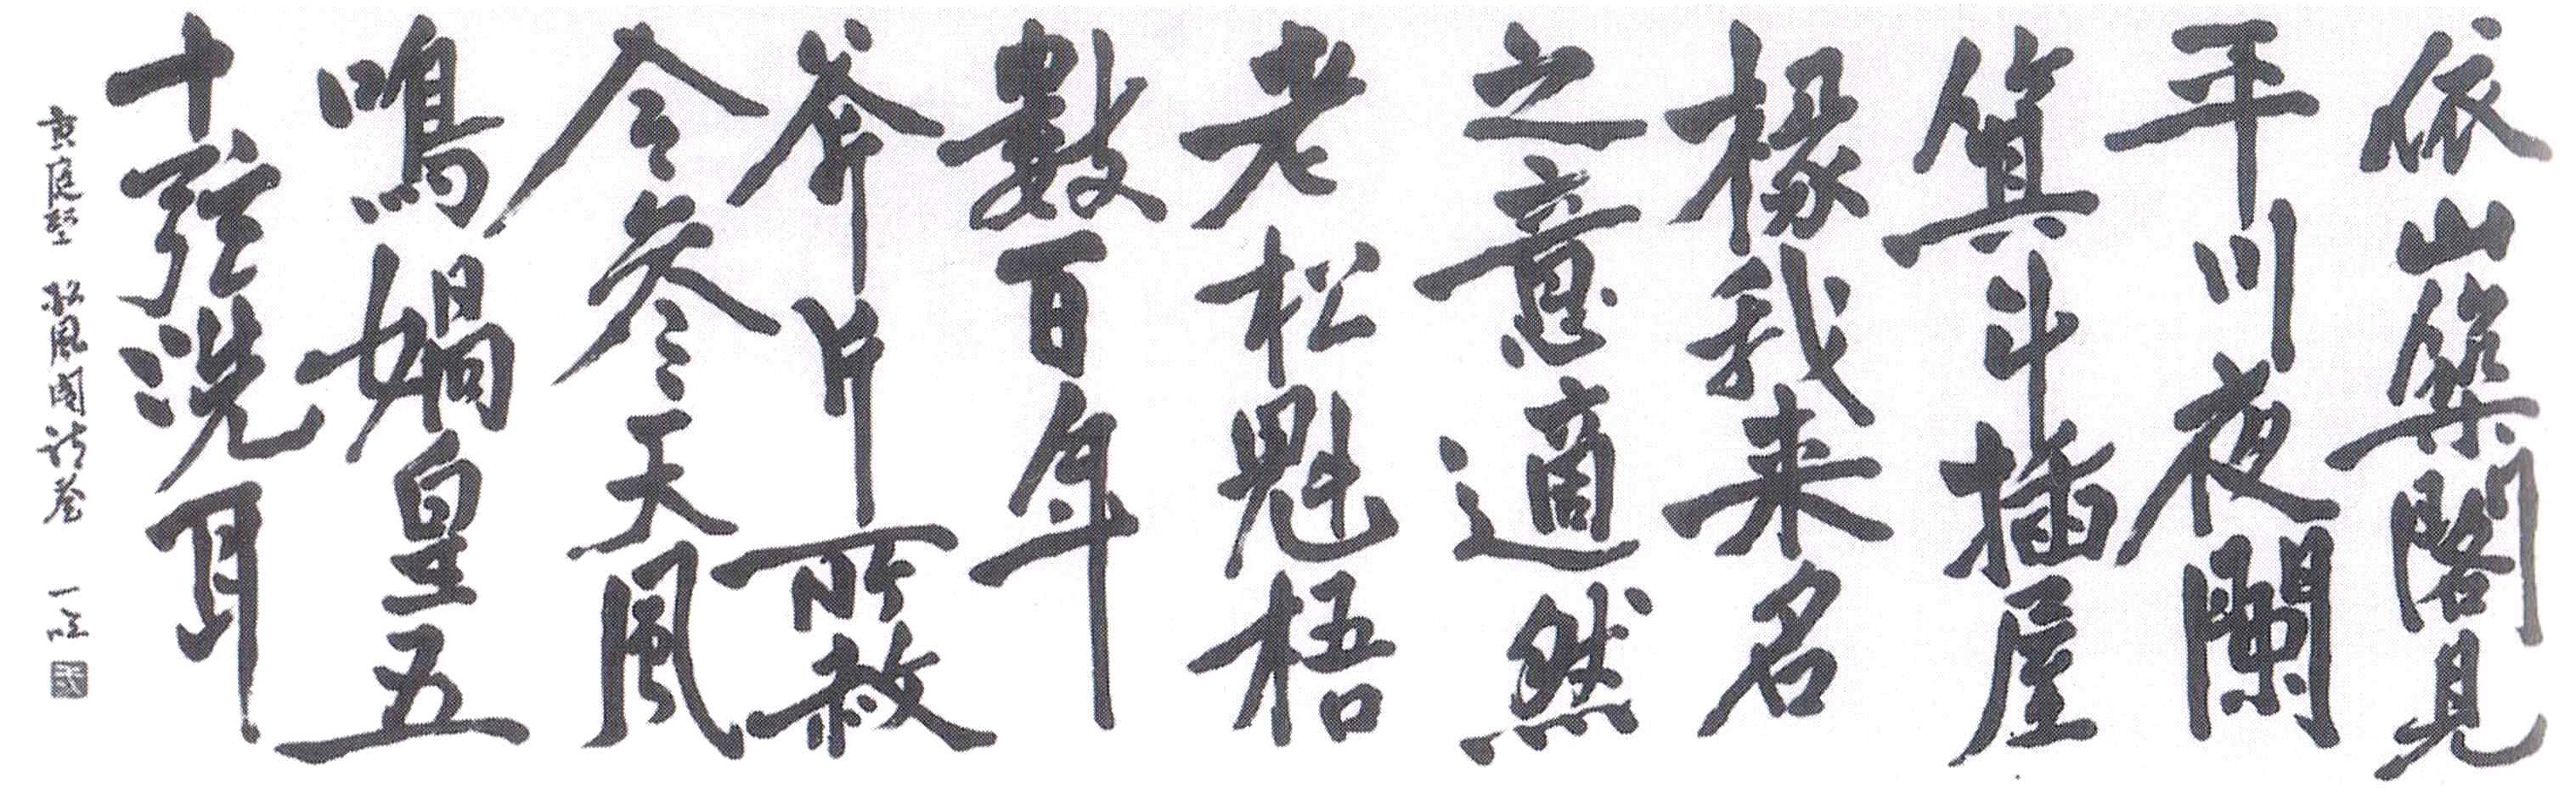 依山築閣見
平川夜闌
箕斗插屋
椽我来名
之意適然
老松魁梧
數百年
斧斤所赦
今參天風
鳴媧皇五
十弦洗耳
黄庭堅 松風閣詩卷